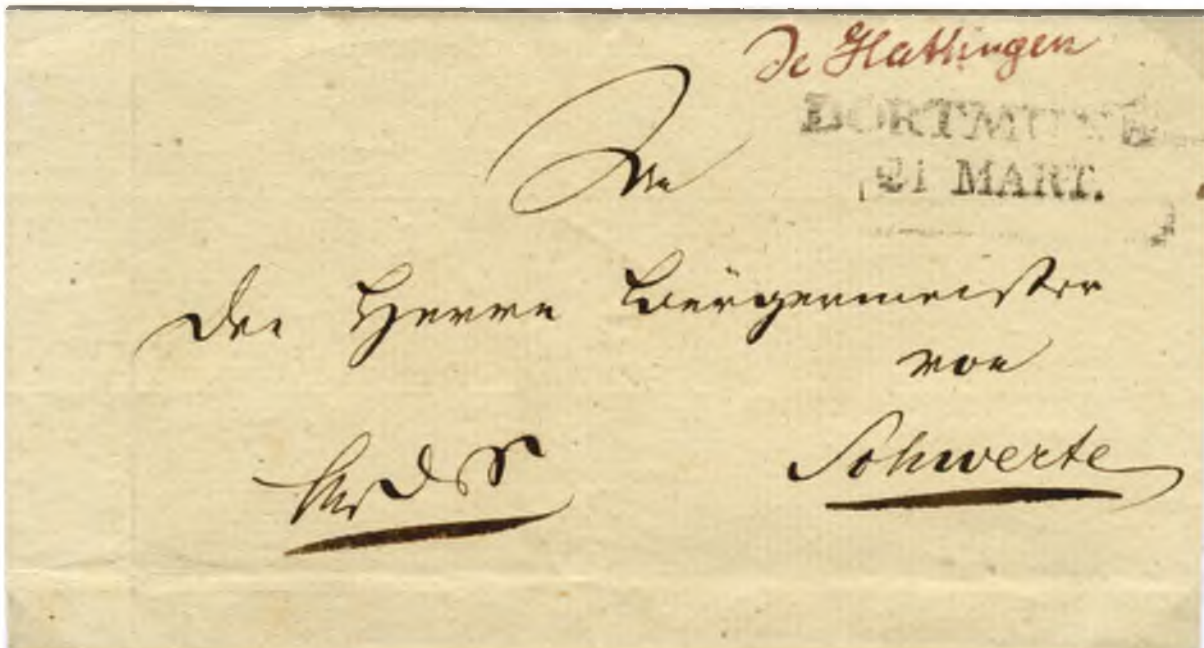 de Hattingen
DORTMUND
21 MART.
An
den Herrn Bürgermeister
von
Schwerte